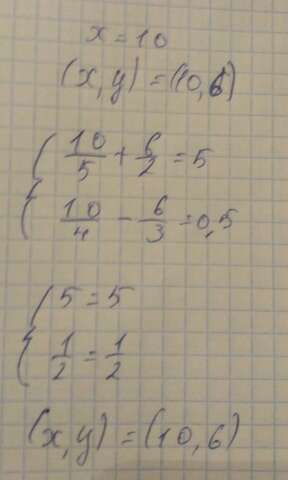 x = 10
(x, y) = (10, 6)
{ 10/5 + 6/2 = 5
{ 10/4 - 6/3 = 0,5
{ 5 = 5
{ 1/2 = 1/2
(x, y) = (10, 6)